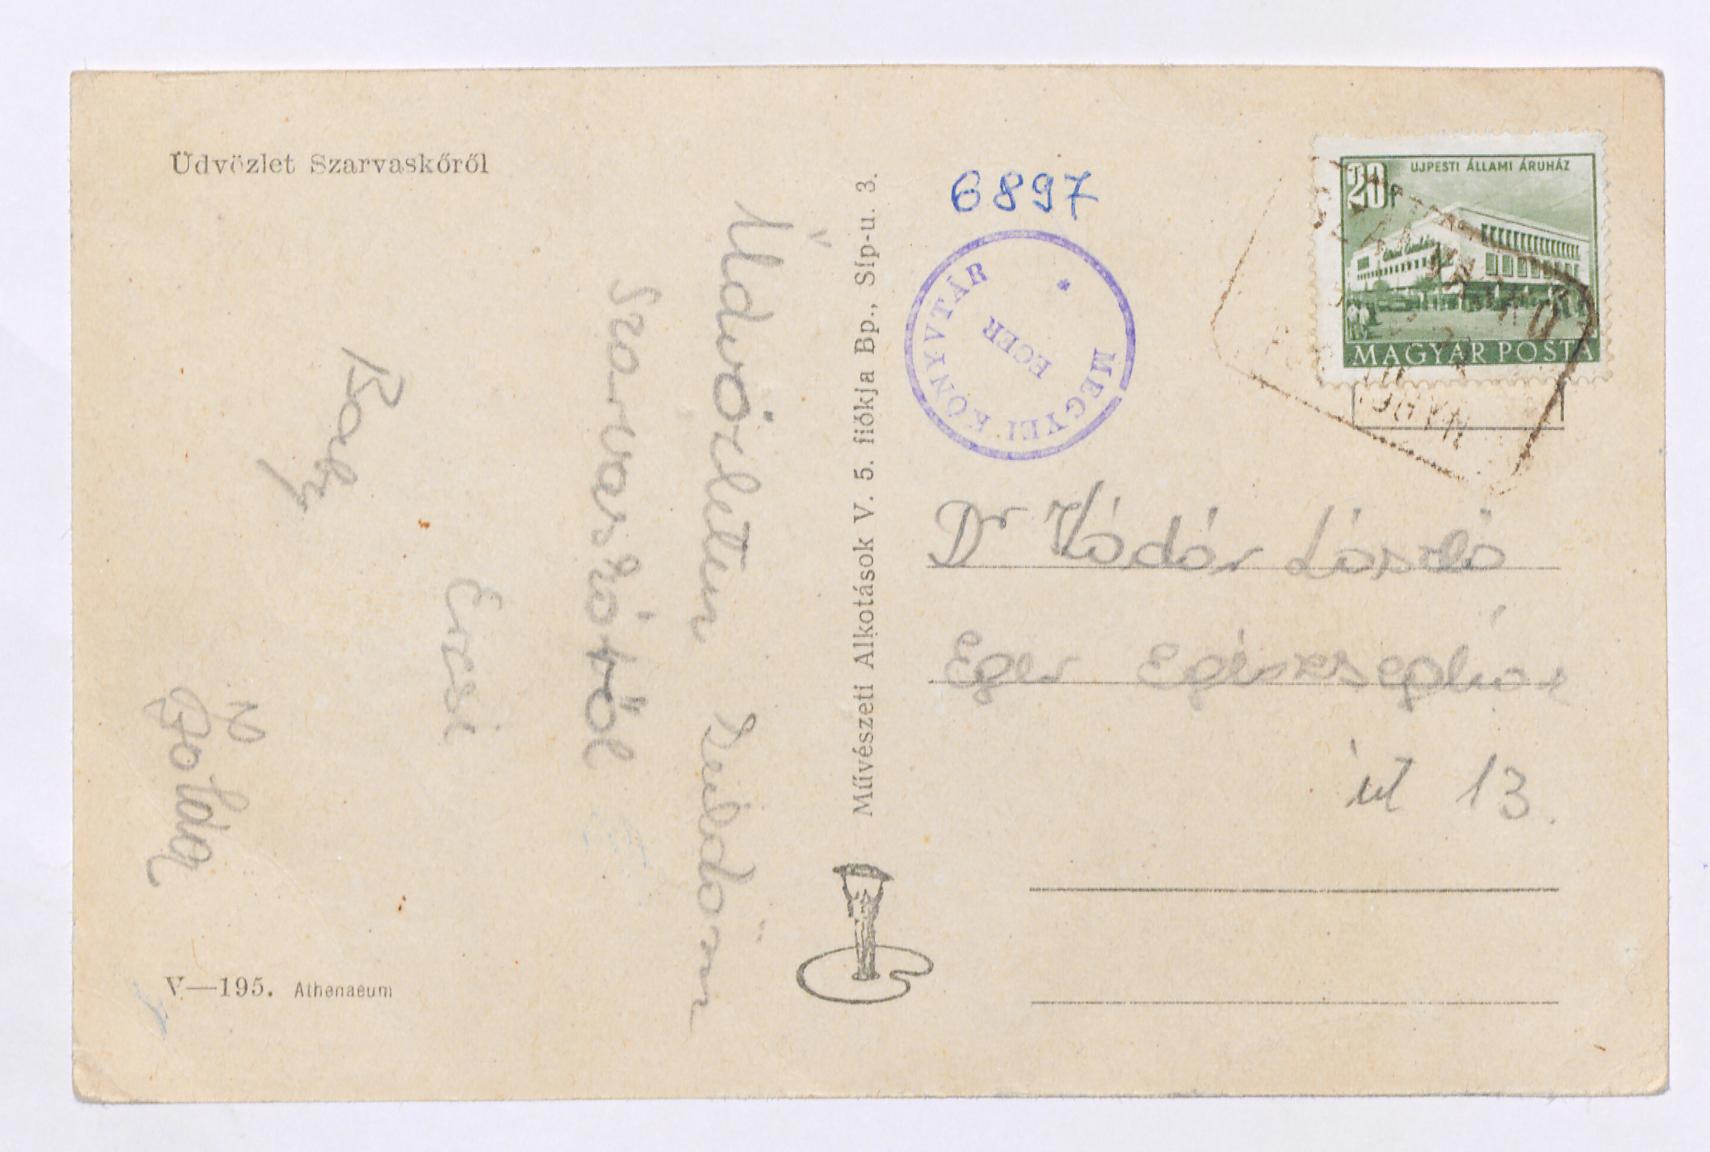 Üdvözlet Szarvaskőről
Üdvözletem küldöm
Szarvaskőről
Erzsi
Baby
Zoltán
V—195. Athenaeum
Művészeti Alkotások V. 5. fiókja Bp., Síp-u. 3.
6897
MEGYEI KÖNYVTÁR
EGER
20f
UJPESTI ÁLLAMI ÁRUHÁZ
MAGYAR POSTA
Dr Kádár László
Eger Egészségház
út 13.